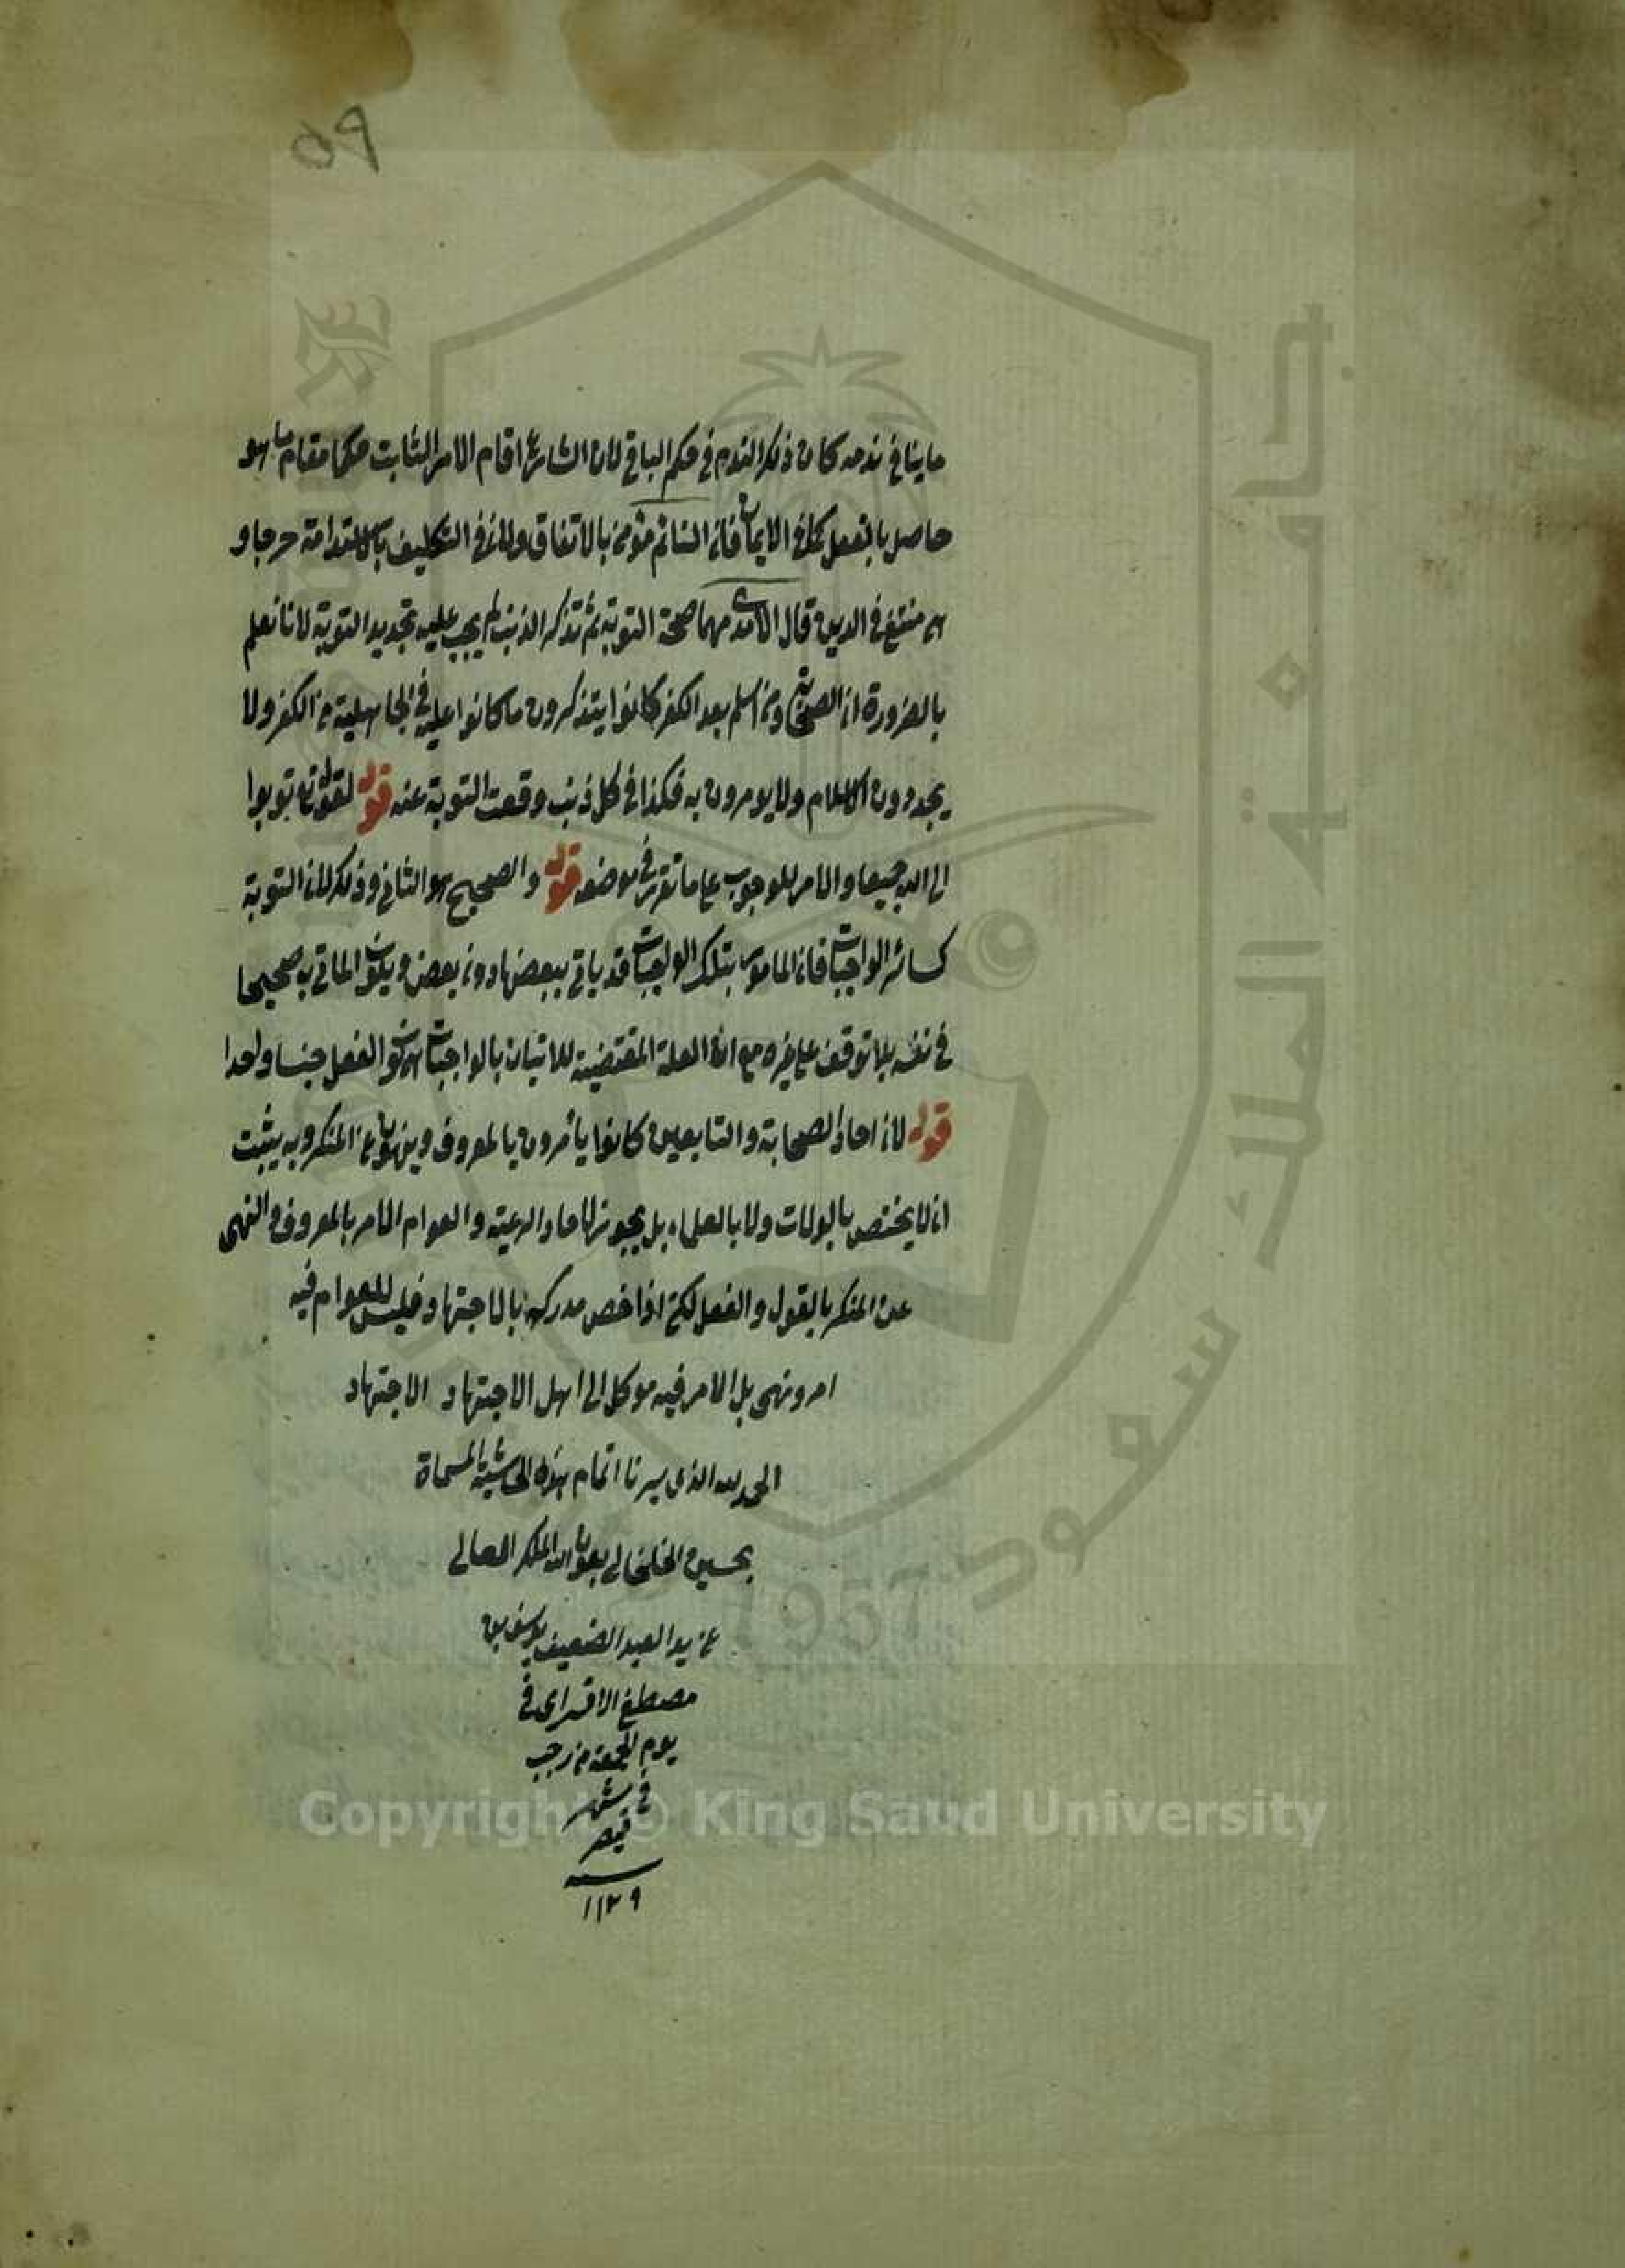 ما ينافى ندمه كان ذلك الندم فى حكم الباقى لان الشارع اقام الامر الثابت حكما مقام ما هو
حاصل بالفعل كما فى الايمان فان النائم مؤمن بالاتفاق ولان فى التكليف باستدامة حرجا و
هو منتف فى الدين قال الآمدى مهما صحة التوبة ثم تذكر الذنب لم يجب عليه تجديد التوبة لانا نعلم
بالضرورة ان الصحابة ومن اسلم بعد الكفر كانوا يتذكرون ما كانوا عليه فى الجاهلية من الكفر ولا
يجددون الاسلام ولا يومرون به فكذا فى كل ذنب وقعت التوبة عنه قوله لقوله تع توبوا
الى الله جميعا والامر للوجوب على ما تقرر فى موضعه قوله والصحيح هو الثانى وذلك لان التوبة
كسائر الواجبات فان المامور بتلك الواجبات قد ياتى ببعضها دون بعض ويكون الماتى به صحيحا
فى نفسه بلا توقف على غيره مع ان العلة المقتضية للاتيان بالواجبات هو كون الفعل حسنا واحدا
قوله لان احاد الصحابة والتابعين كانوا يأمرون بالمعروف وينهون عن المنكر وبه يثبت
انه لا يختص بالولات ولا بالعلماء بل يجوز لاحاد الرعية والعوام الامر بالمعروف والنهى
عن المنكر بالقول والفعل لكن اذا خص مدركه بالاجتهاد فليس للعوام فيه
امر ونهى بل الامر فيه موكل الى اهل الاجتهاد الاجتهاد
الحمد لله الذى يسرنا اتمام هذه الحاشية المسماة
بحسين الخلخالى بعون الله الملك العالى
عن يد العبد الضعيف يوسف بن
مصطفى الاقسراى فى
يوم الجمعة من رجب
فى شهر
سنه
١١٢٩
Copyright © King Saud University
جامعة الملك سعود
1957